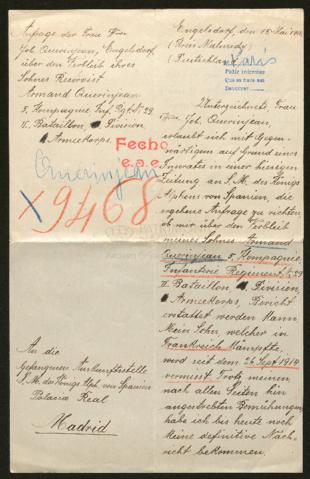 Anfrage der Frau Frau
Joh. Querinjean, Engelsdorf,
über den Verbleib ihres
Sohnes Reservist
Armand Querinjean
5. Kompagnie Inf. Rgt. Nr 29.
II. Bataillon, Division,
Armeekorps.
Fecho
e.a.e.
Querinjean
X9468
An die
Gefangenen Auskunftsstelle
S. M. des Königs Alph. von Spanien
Palacio Real
Madrid
Engelsdorf, den 18. Mai
(Kreis Malmedy)
(Deutschland)
Paris
Pedir informes
Que se haga así
Unterzeichnete, Frau
Joh. Querinjean,
erlaubt sich mit Gegen-
wärtigem auf Grund eines
Inserates in einer hiesigen
Zeitung an S. M. des Königs
Alphons von Spanien, die
ergebene Anfrage zu richten,
ob mir über den Verbleib
meines Sohnes Armand
Querinjean 5. Kompagnie
Infanterie Regiment Nr 29
II. Bataillon, Division,
Armeekorps, Bericht
erstattet werden kann.
Mein Sohn, welcher in
Frankreich kämpfte,
wird seit dem 26. Sept. 1914
vermisst. Trotz meinen
nach allen Seiten hin
angestrebten Bemühungen
habe ich bis heute noch
keine definitive Nach-
richt bekommen.